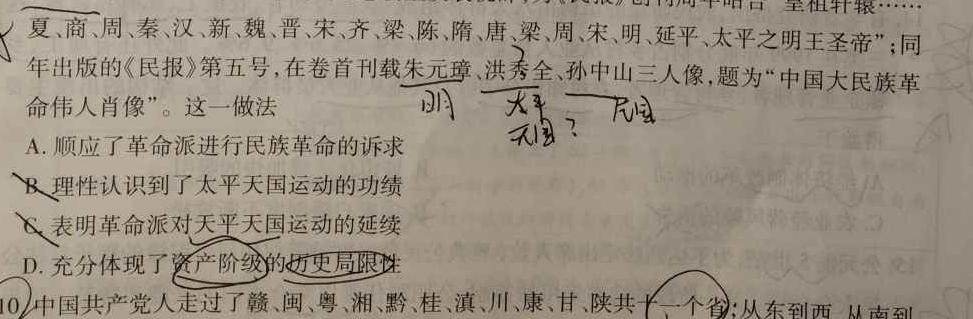 夏、商、周、秦、汉、新、魏、晋、宋、齐、梁、陈、隋、唐、梁、周、宋、明、延平、太平之明王圣帝”;同
年出版的《民报》第五号,在卷首刊载朱元璋、洪秀全、孙中山三人像,题为“中国大民族革
命伟人肖像”。这一做法
明 太平天国? 民国
A. 顺应了革命派进行民族革命的诉求
B. 理性认识到了太平天国运动的功绩
C. 表明革命派对天平天国运动的延续
D. 充分体现了资产阶级的历史局限性
10 中国共产党人走过了赣、闽、粤、湘、黔、桂、滇、川、康、甘、陕共十一个省;从东到西,从南到